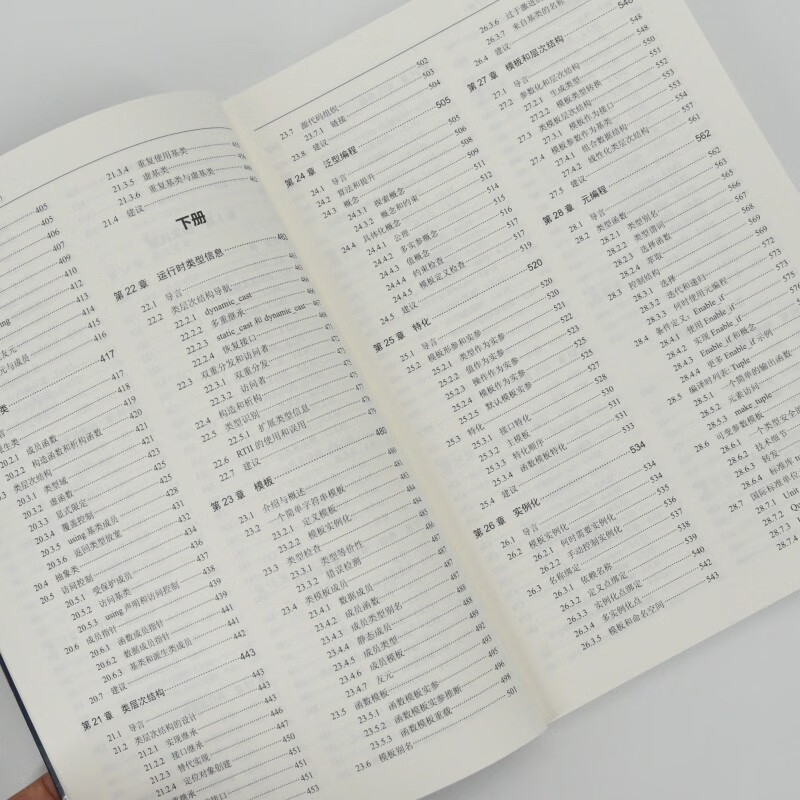 405
405
406
407
409
410
412
413
414
415
416
417
417
418
419
20.2.1 成员函数 420
20.2.2 构造函数和析构函数 421
类层次结构 421
20.3.1 类型域 423
20.3.2 虚函数 425
20.3.3 显式限定 425
20.3.4 覆盖控制 428
20.3.5 using 基类成员 431
20.3.6 返回类型放宽 432
20.4 抽象类 434
20.5 访问控制 436
20.5.1 受保护成员 437
20.5.2 访问基类 438
20.5.3 using 声明和访问控制 439
20.6 成员指针 439
20.6.1 函数成员指针 441
20.6.2 数据成员指针 441
20.6.3 基类和派生类成员 442
20.7 建议
第 21 章 类层次结构 443
21.1 导言 443
21.2 类层次结构的设计 443
21.2.1 实现继承 446
21.2.2 接口继承 447
21.2.3 替代实现 450
21.2.4 定位对象创建 451
451
453
21.3.4 重复使用基类
21.3.5 虚基类
21.3.6 重复基类与虚基类
21.4 建议
下册
第 22 章 运行时类型信息
22.1 导言
22.2 类层次结构导航
22.2.1 dynamic_cast
22.2.2 多重继承
22.2.3 static_cast 和 dynamic_cast
22.2.4 恢复接口
22.3 双重分发和访问者
22.3.1 双重分发
22.3.2 访问者
22.4 构造和析构
22.5 类型识别
22.5.1 扩展类型信息
22.6 RTTI 的使用和误用
22.7 建议
第 23 章 模板
23.1 介绍与概述
23.2 一个简单字符串模板
23.2.1 定义模板
23.2.2 模板实例化
23.3 类型检查
23.3.1 类型等价性
23.3.2 错误检测
23.4 类模板成员
23.4.1 数据成员 487
23.4.2 成员函数 487
23.4.3 成员类型别名 488
23.4.4 静态成员 488
23.4.5 成员类型 489
23.4.6 成员模板
23.4.7 友元 492
23.5 函数模板 493
23.5.1 函数模板实参 495
23.5.2 函数模板实参推断 496
23.5.3 函数模板重载 498
23.6 模板别名 501
502
23.7 源代码组织 503
23.7.1 链接 504
23.8 建议
第 24 章 泛型编程 505
24.1 导言 505
24.2 算法和提升 506
24.3 概念 509
24.3.1 探索概念 511
24.3.2 概念和约束 512
24.4 具体化概念 514
24.4.1 公理 515
24.4.2 多实参概念 516
24.4.3 值概念 517
24.4.4 约束检查 517
24.4.5 模板定义检查 519
24.5 建议
第 25 章 特化 520
25.1 导言 520
25.2 模板形参和实参 520
25.2.1 类型作为实参 521
25.2.2 值作为实参 522
25.2.3 操作作为实参 523
25.2.4 模板作为实参 525
25.2.5 默认模板实参 527
25.3 特化 528
25.3.1 接口特化 530
25.3.2 主模板 531
25.3.3 特化顺序 531
25.3.4 函数模板特化 533
25.4 建议
第 26 章 实例化 534
26.1 导言 534
26.2 模板实例化 534
26.2.1 何时需要实例化 535
26.2.2 手动控制实例化 536
26.3 名称绑定 538
26.3.1 依赖名称 539
26.3.2 定义点绑定 540
26.3.3 实例化点绑定 542
26.3.4 多实例化点 543
26.3.5 模板和命名空间
26.3.6 过于激进的
26.3.7 来自基类的名称 546
26.4 建议 548
第 27 章 模板和层次结构
27.1 导言 548
27.2 参数化和层次结构 550
27.2.1 生成类型 551
27.2.2 模板类型转换 552
27.3 类模板层次结构 553
27.3.1 模板作为接口 553
27.4 模板参数作为基类 554
27.4.1 组合数据结构 557
27.4.2 线性化类层次结构 561
27.5 建议
第 28 章 元编程 562
28.1 导言 562
28.2 类型函数 563
28.2.1 类型别名 565
28.2.2 类型谓词 566
28.2.3 选择函数 567
28.2.4 萃取 568
28.3 控制结构 569
28.3.1 选择 569
28.3.2 迭代和递归 572
28.3.3 何时使用元编程 573
28.4 条件定义：Enable_if
28.4.1 使用 Enable_if
28.4.2 实现 Enable_if
28.4.3 Enable_if 和概念
28.4.4 更多 Enable_if 示例
28.5 编译时列表：Tuple
28.5.1 一个简单的输出函数
28.5.2 元素访问
28.5.3 make_tuple
28.6 可变参数模板
28.6.1 一个类型安全
28.6.2 技术细节
28.6.3 转发
28.6.4 标准库
28.7 国际标准单位
28.7.1 Unit
28.7.2
28.7.3
28.7.4